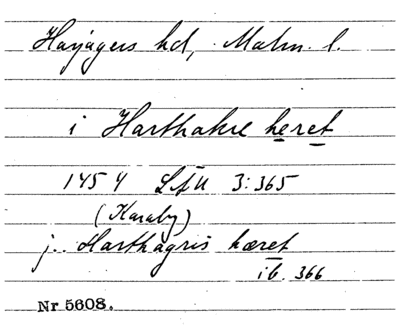 Harjagers hd, Malm. l.
i Harthakre heret
1454 LfU 3:365
(Karaby)
j.. Harthagris hæret
ib. 366
Nr 5608.